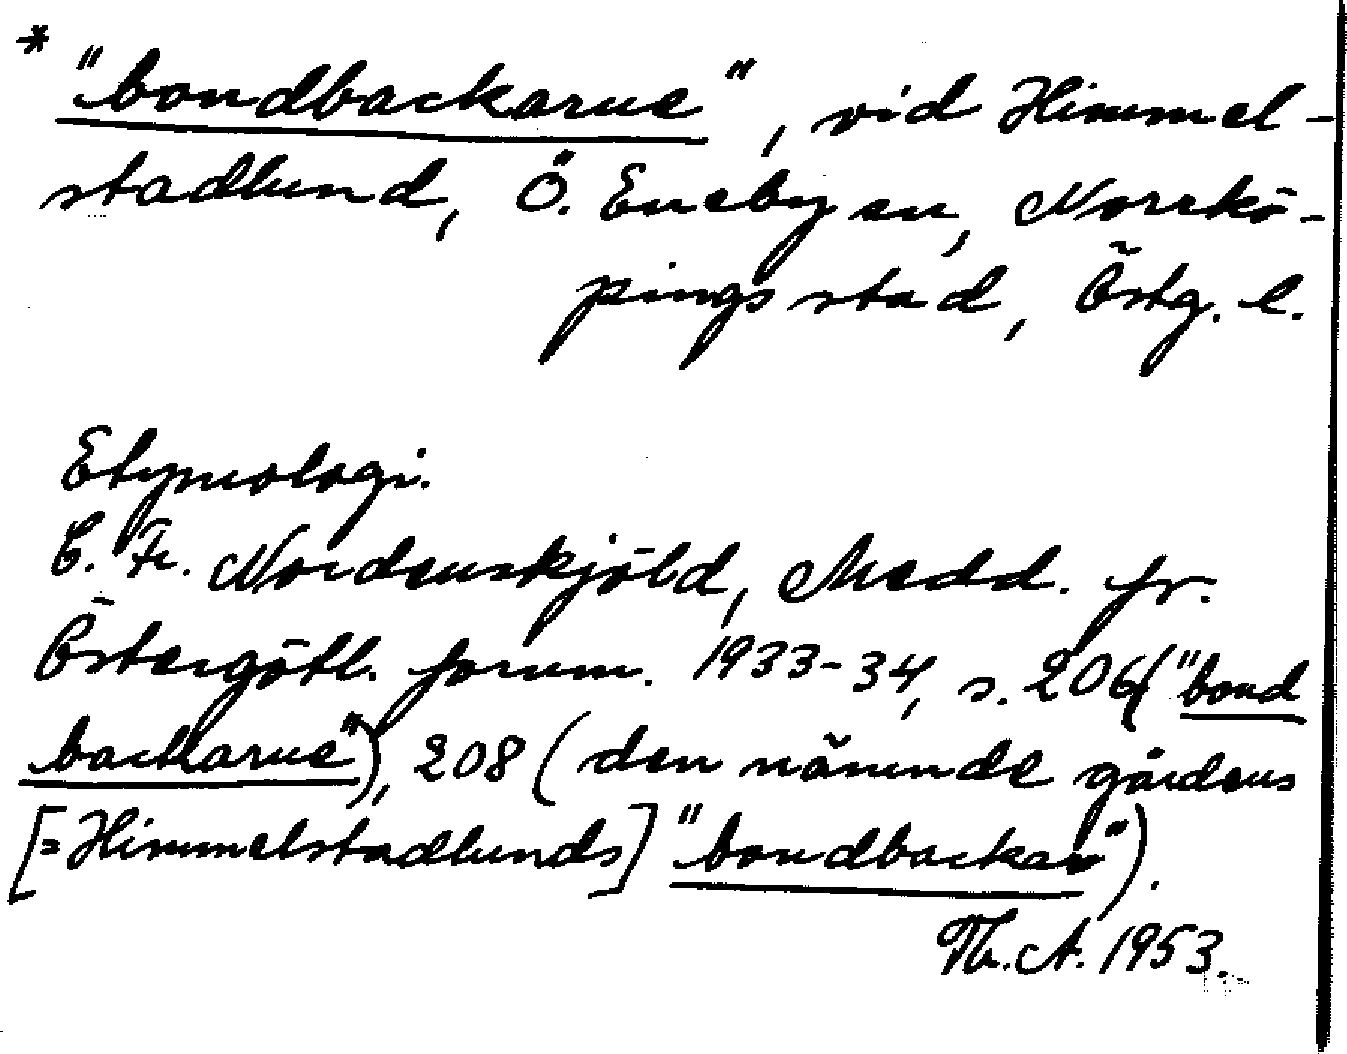 * "bondbackarne", vid Himmel-
stadlund, Ö. Eneby sn, Norrkö-
pings stad, Östg. l.
Etymologi.
C. Fr. Nordenskjöld, Medd. fr.
Östergötl. fornm. 1933-34, s. 206 ("bond
backarne"), 208 (den nämnde gårdens
[= Himmelstadlunds] "bondbackar").
Th. A. 1953.